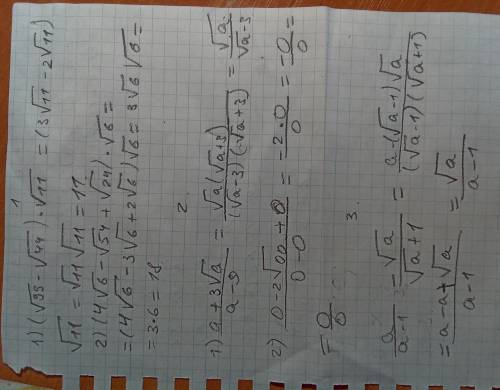 1
1) (√99 - √44) · √11 = (3√11 - 2√11)
√11 = √11 √11 = 11
2) (4√6 - √54 + √24) · √6 =
= (4√6 - 3√6 + 2√6) √6 = 3√6 √6 =
= 3 · 6 = 18
2.
1) (a + 3√a)/(a - 9) = (√a(√a + 3))/((√a - 3)(√a + 3)) = √a/(√a - 3)
3.
a/(a - 1) - √a/(√a + 1) = (a - (√a - 1)√a)/((√a - 1)(√a + 1))
= (a - a + √a)/(a - 1) = √a/(a - 1)